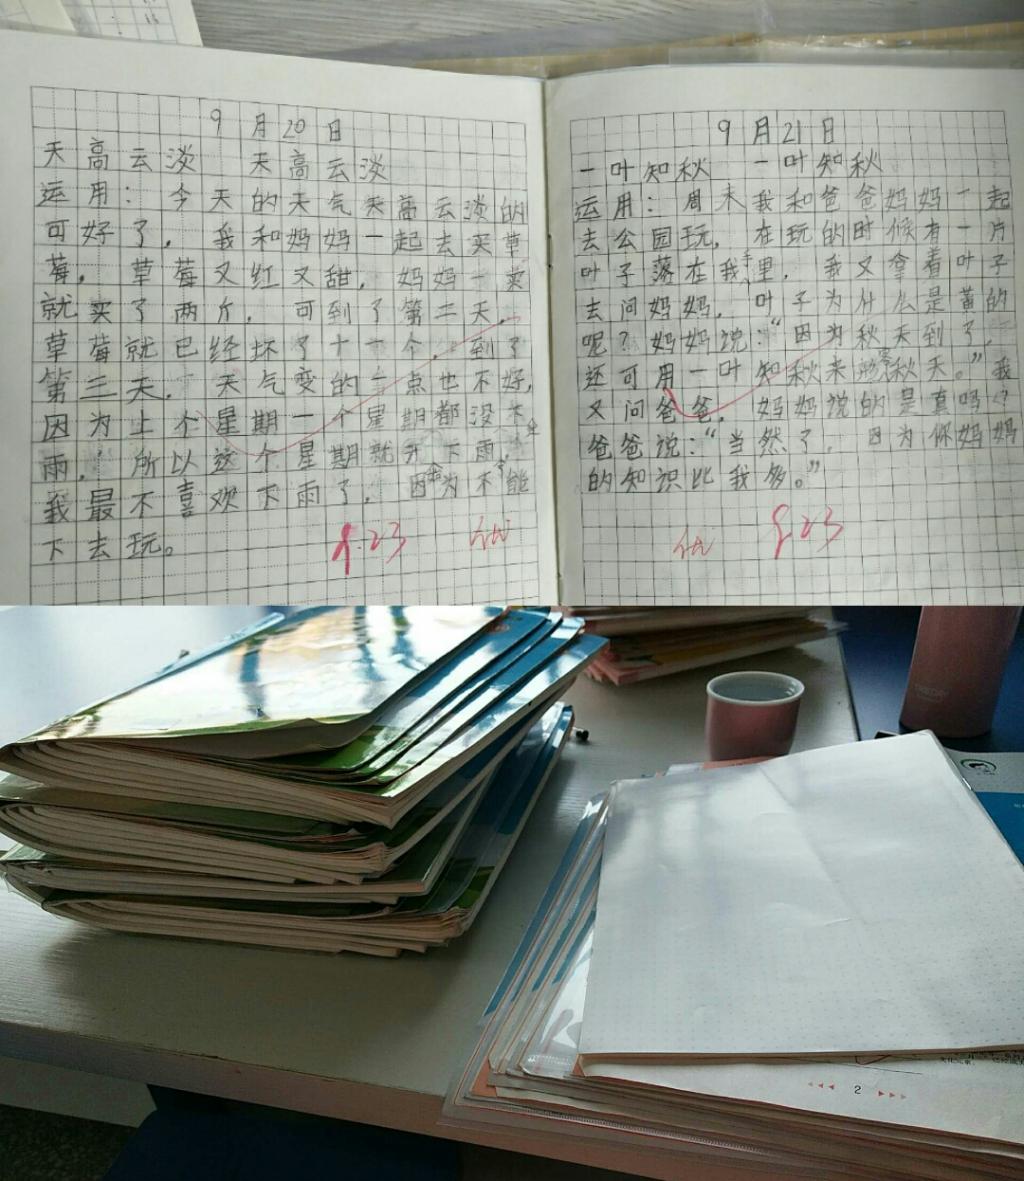 9月20日
天高云淡 天高云淡
运用：今天的天气天高云淡的
可好了，我和妈妈一起去买草
莓，草莓又红又甜，妈妈一买
就买了两斤，可到了第二天，
草莓就已经坏了十一个，到了
第三天，天气变的一点也不好，
因为上个星期一个星期都没下
雨，所以这个星期就开下雨，
我最不喜欢下雨了，因为不能
下去玩。
9.23 优
9月21日
一叶知秋 一叶知秋
运用：周末我和爸爸妈妈一起
去公园玩，在玩的时候有一片
叶子落在我手里，我又拿着叶子
去问妈妈，叶子为什么是黄的
呢？妈妈说：“因为秋天到了，
还可用一叶知秋来形容秋天。”我
又问爸爸，妈妈说的是真吗？
爸爸说：“当然了，因为你妈妈
的知识比我多。”
优 9.23
2